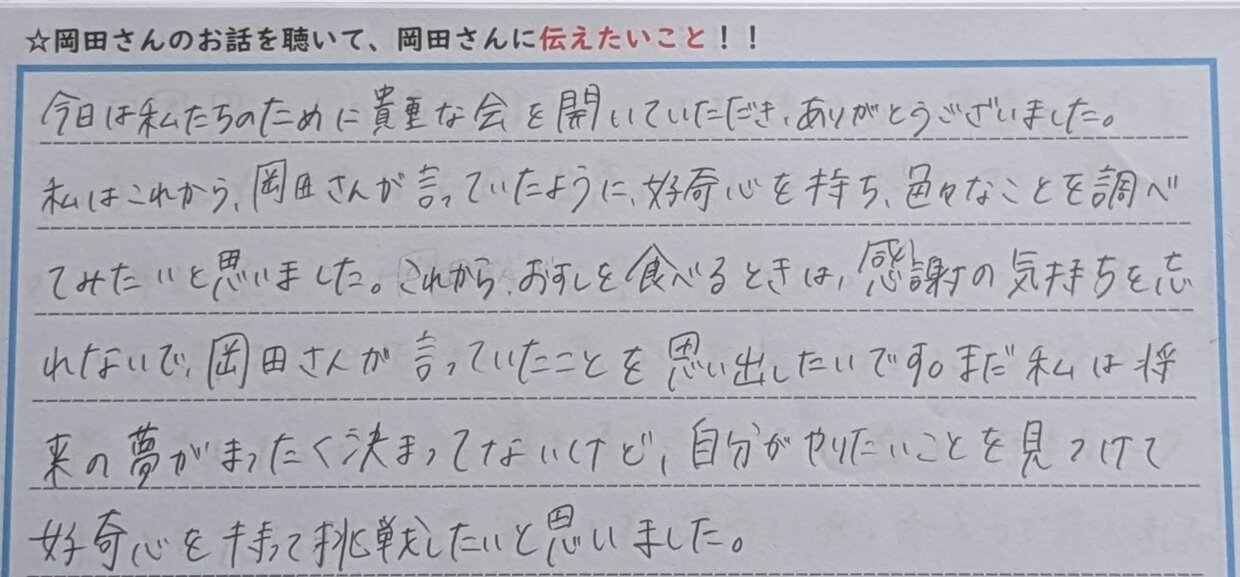 ☆岡田さんのお話を聴いて、岡田さんに伝えたいこと！！
今日は私たちのために貴重な会を開いていただき、ありがとうございました。
私はこれから、岡田さんが言っていたように、好奇心を持ち、色々なことを調べ
てみたいと思いました。これから、おすしを食べるときは、感謝の気持ちを忘
れないで、岡田さんが言っていたことを思い出したいです。まだ私は将
来の夢がまったく決まってないけど、自分がやりたいことを見つけて
好奇心を持って挑戦したいと思いました。